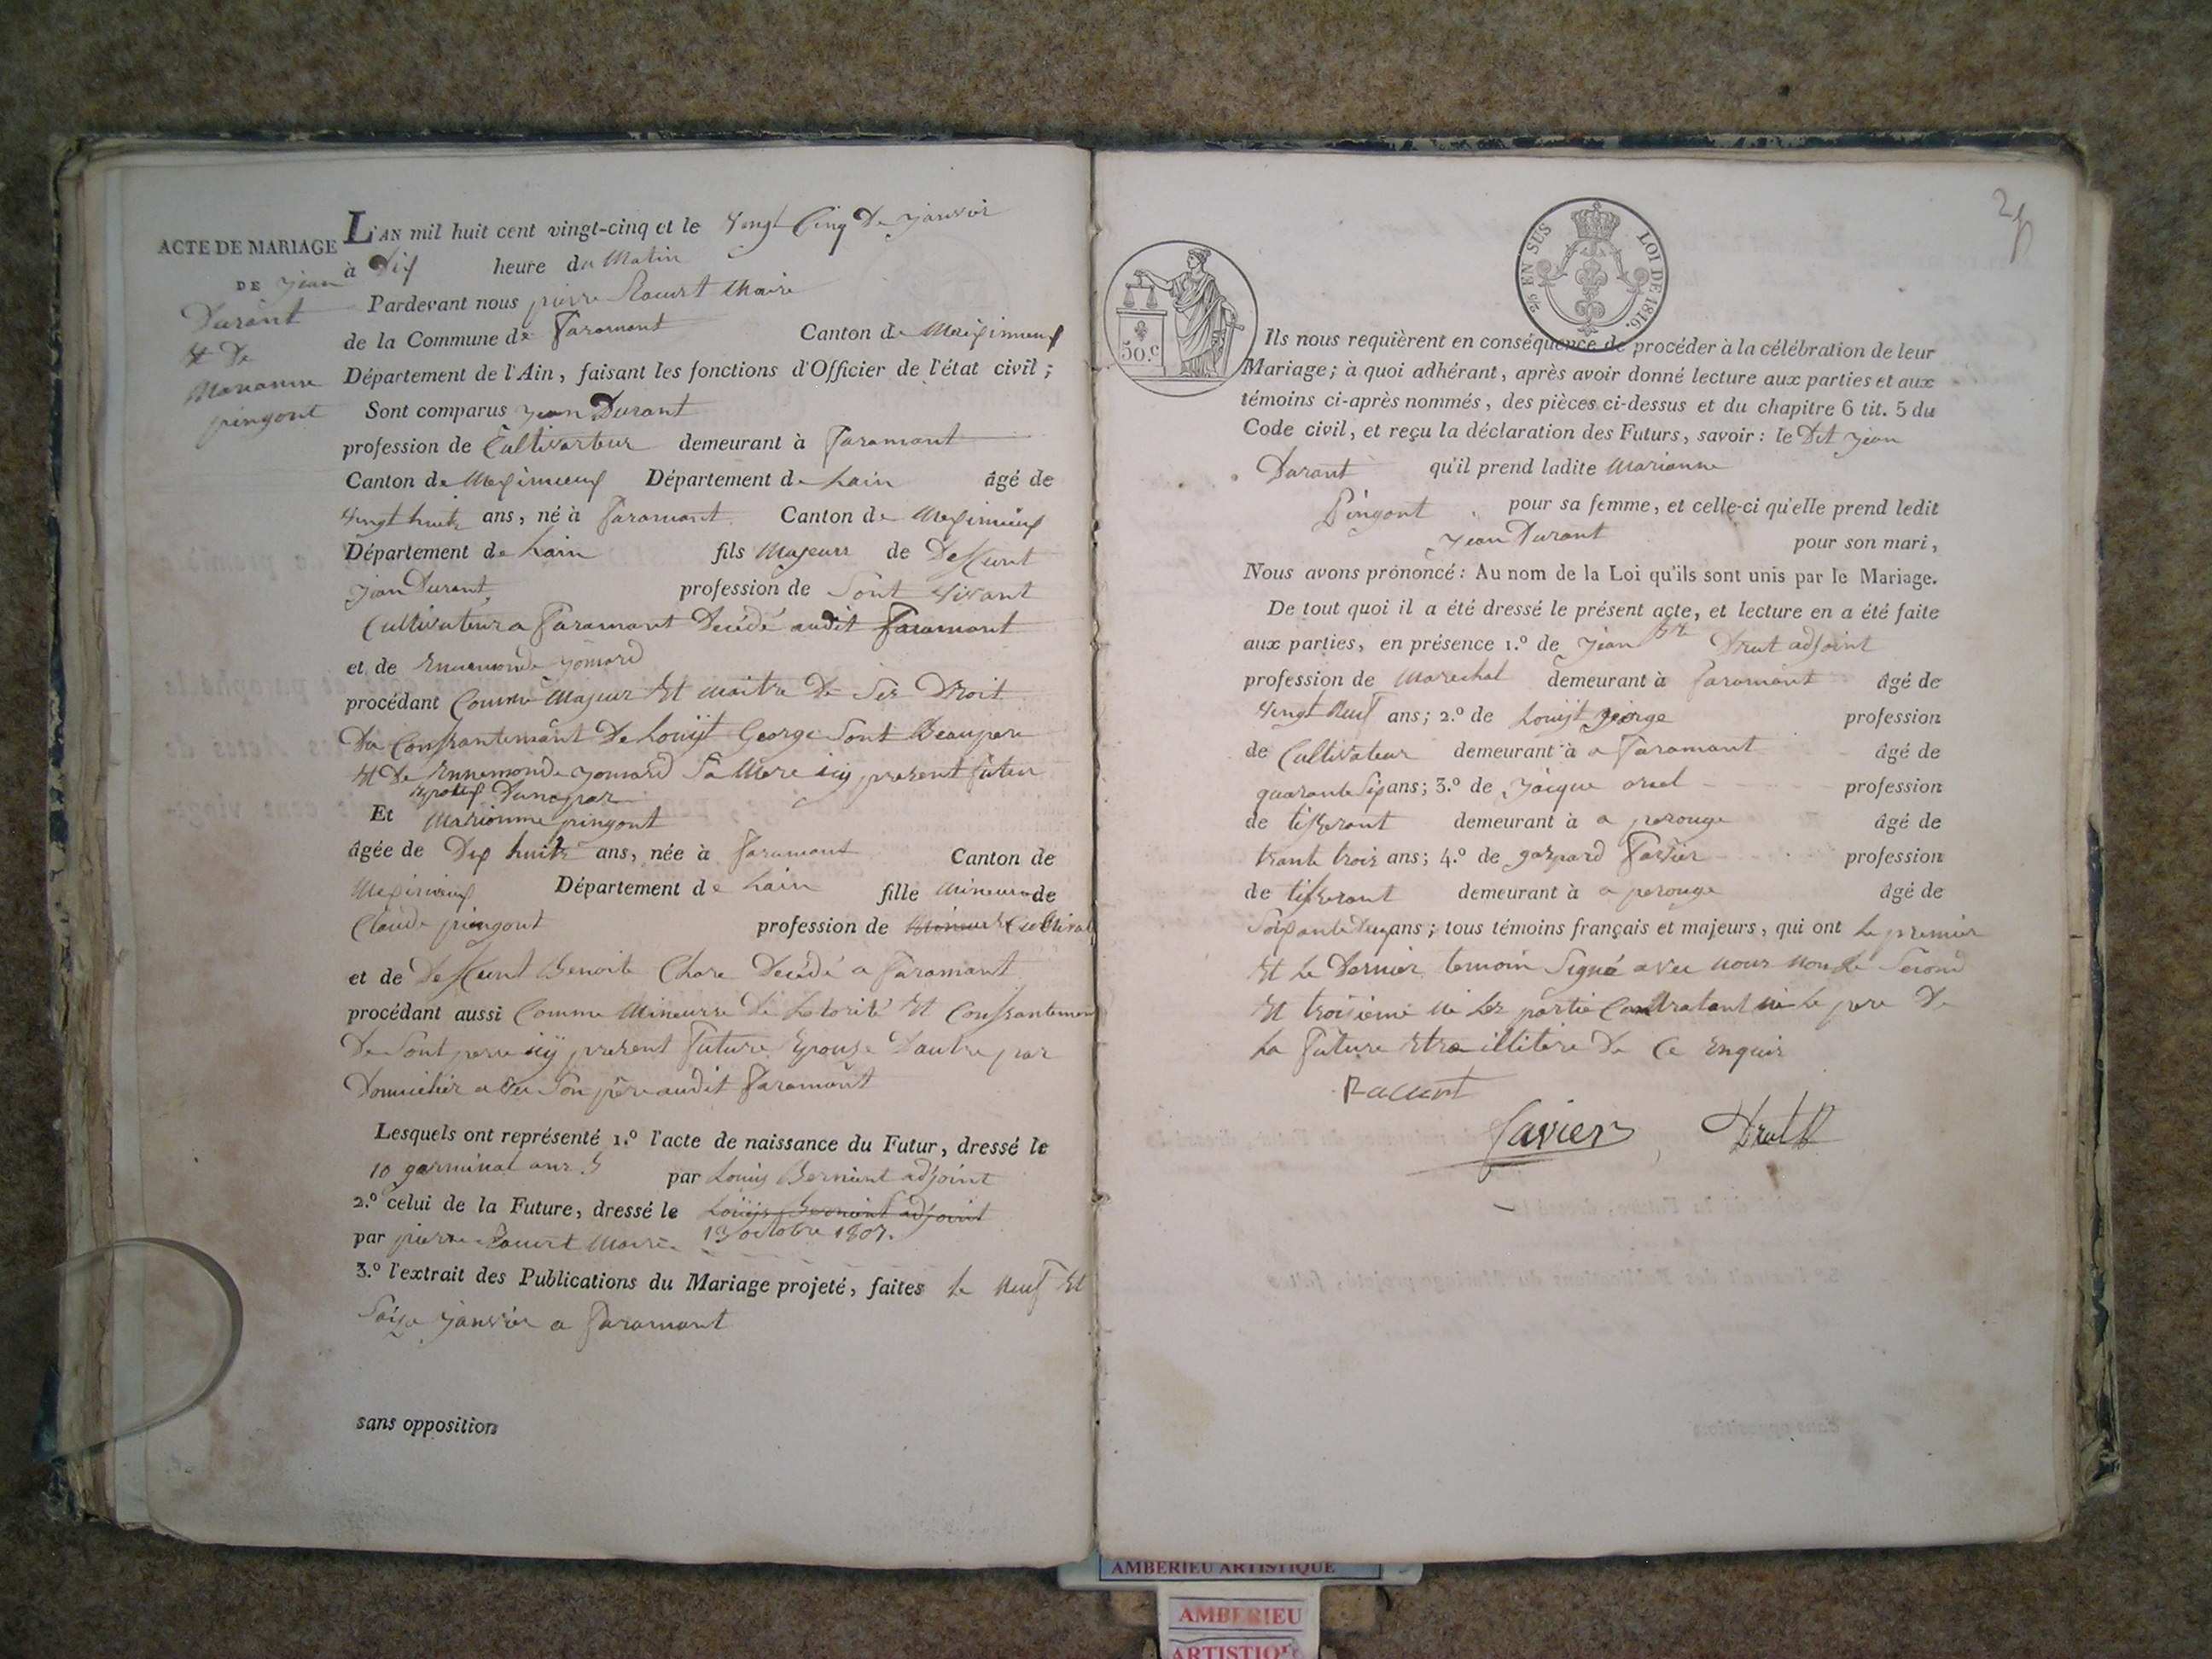 ACTE DE MARIAGE
DE Jean
Durant
Et De
Marianne
pingont
L'AN mil huit cent vingt-cinq et le Vingt Cinq De janvier
à Dix heure du Matin
Pardevant nous pierre Racurt Maire
de la Commune de Faramant Canton de Meximieux
Département de l'Ain, faisant les fonctions d'Officier de l'état civil;
Sont comparus Jean Durant
profession de Cultivarteur demeurant à Faramant
Canton de Meximieux Département de Lain âgé de
Vingt huit ans, né à Faramant Canton de Meximieux
Département de Lain fils Majeurs de Deffunt
Jean Durant profession de Sont Vivant
Cultivateur a Faramant Décédé audit Faramant
et de Ennemonde Jomard
procédant Comme Majeur Et Maitre De Ses Droit
Du Consantemant De Louist George Sont Beaupere
Et De Ennemonde Jomard Sa Mere icy present futur
Epoux Dune par
Et Marianne pingont
âgée de Dix huite ans, née à Faramant Canton de
Meximieux Département de Lain fille Mineure de
Claude pingont profession de Cultivat
et de Deffunt Benoite Chare Décédé a Faramant
procédant aussi Comme Mineurre De Lotorité Et Consantement
De Sont perre icy present Future Epouse Dautre par
Domicilier avec Son père audit Faramant
Lesquels ont représenté 1.º l'acte de naissance du Futur, dressé le
10 germinal ans 5 par Louis Berniant adjoint
2.º celui de la Future, dressé le Louis Berniant adjoint
19 octobre 1807.
par pierre Racurt Maire
3.º l'extrait des Publications du Mariage projeté, faites Le Neuf Et
Saize Janvier a Faramant
sans opposition
25
2/5 EN SUS LOI DE 1816.
50.c
Ils nous requièrent en conséquence de procéder à la célébration de leur
Mariage; à quoi adhérant, après avoir donné lecture aux parties et aux
témoins ci-après nommés, des pièces ci-dessus et du chapitre 6 tit. 5 du
Code civil, et reçu la déclaration des Futurs, savoir: le Dit Jean
Durant qu'il prend ladite Marianne
Pingont pour sa femme, et celle-ci qu'elle prend ledit
Jean Durant pour son mari,
Nous avons prononcé: Au nom de la Loi qu'ils sont unis par le Mariage.
De tout quoi il a été dressé le présent acte, et lecture en a été faite
aux parties, en présence 1.º de Jean Bte Drut adjoint
profession de Marechal demeurant à Faramant âgé de
Vingt Neuf ans; 2.º de Louist George profession
de Cultivateur demeurant à a Faramant âgé de
quarante Six ans; 3.º de Jaique profession
de tisserant demeurant à a perouge âgé de
trante trois ans; 4.º de gaspard Favier profession
de tisserant demeurant à a perouge âgé de
Soixante Deux ans; tous témoins français et majeurs, qui ont Le premier
Et Le Dernier temoin Signé avec Nous Non Le Second
Et troisieme Ni Les partie Contratant Ni Le pere De
La Future Etre illitére De Ce Enquis
Racurt
Favier Drut
AMBERIEU ARTISTIQUE
AMBERIEU
ARTISTIQUE